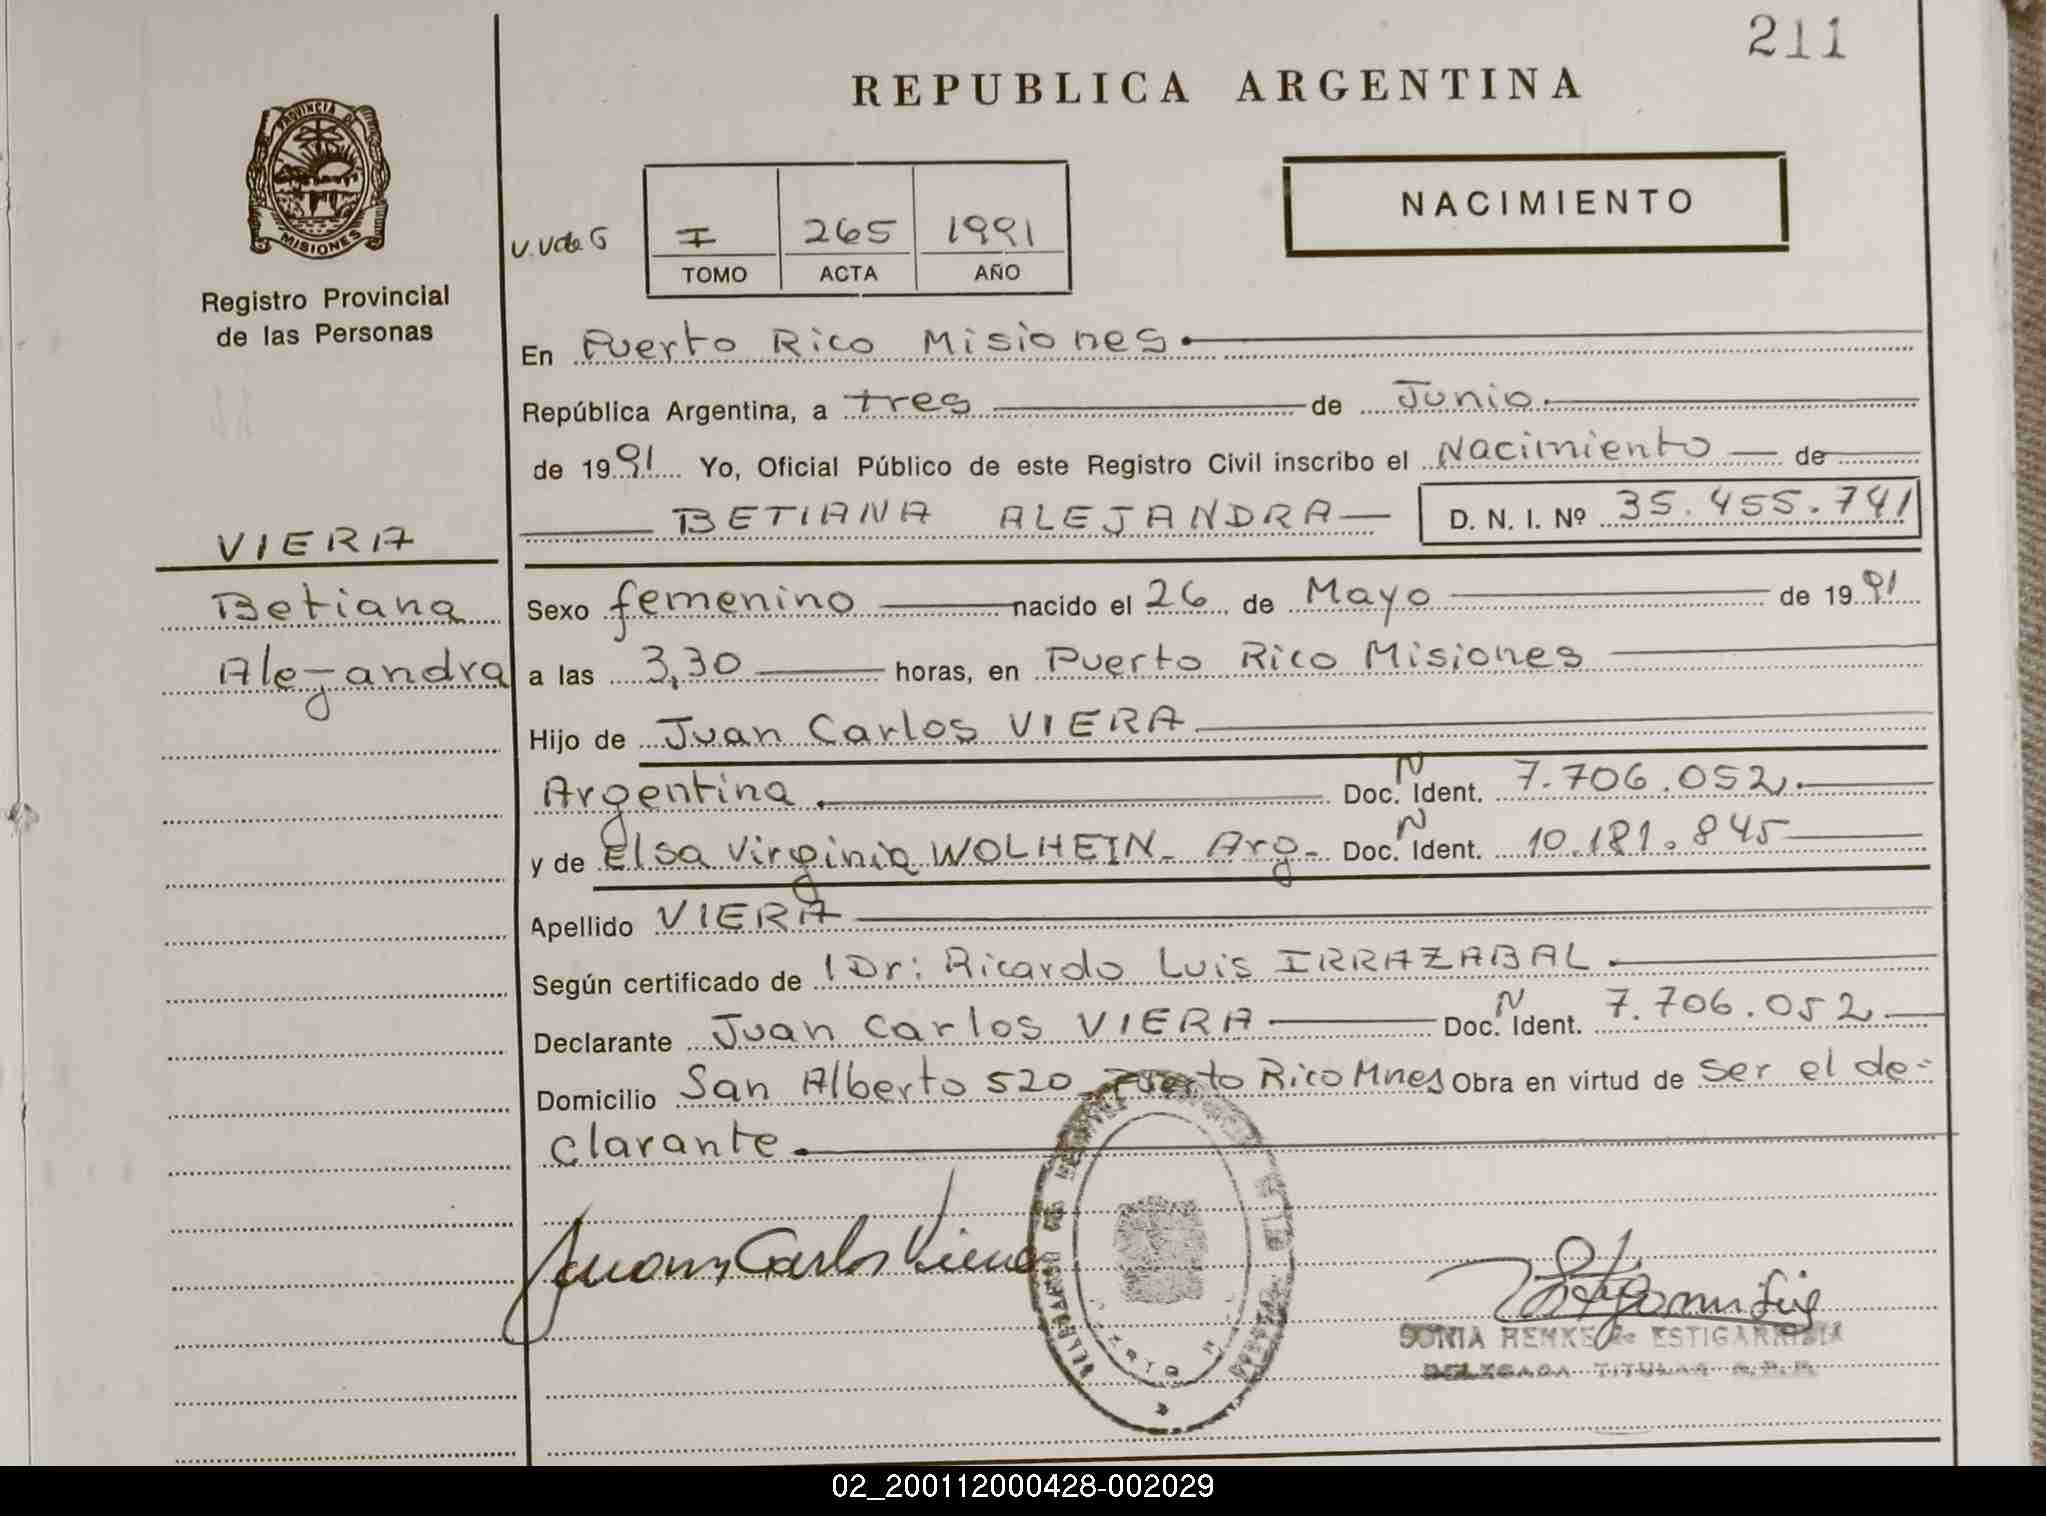 211
REPUBLICA ARGENTINA
PROVINCIA DE
MISIONES
Registro Provincial
de las Personas
NACIMIENTO
V.V de G
I 265 1991
TOMO ACTA AÑO
En Puerto Rico Misiones
República Argentina, a tres de Junio
de 1991 Yo, Oficial Público de este Registro Civil inscribo el Nacimiento de
BETIANA ALEJANDRA D. N. I. Nº 35.455.741
VIERA
Betiana
Alejandra
Sexo femenino nacido el 26 de Mayo de 1991
a las 3,30 horas, en Puerto Rico Misiones
Hijo de Juan Carlos VIERA
Argentina Doc. N Ident. 7.706.052
y de Elsa Virginia WOLHEIN - Arg - Doc. N Ident. 10.181.845
Apellido VIERA
Según certificado de Dr: Ricardo Luis IRRAZABAL
Declarante Juan Carlos VIERA Doc. N Ident. 7.706.052
Domicilio San Alberto 520 Puerto Rico Mnes Obra en virtud de ser el de-
clarante
Juan Carlos Viera
SONIA HENKE de ESTIGARRIBIA
DELEGADA TITULAR R.P.P.
02_200112000428-002029